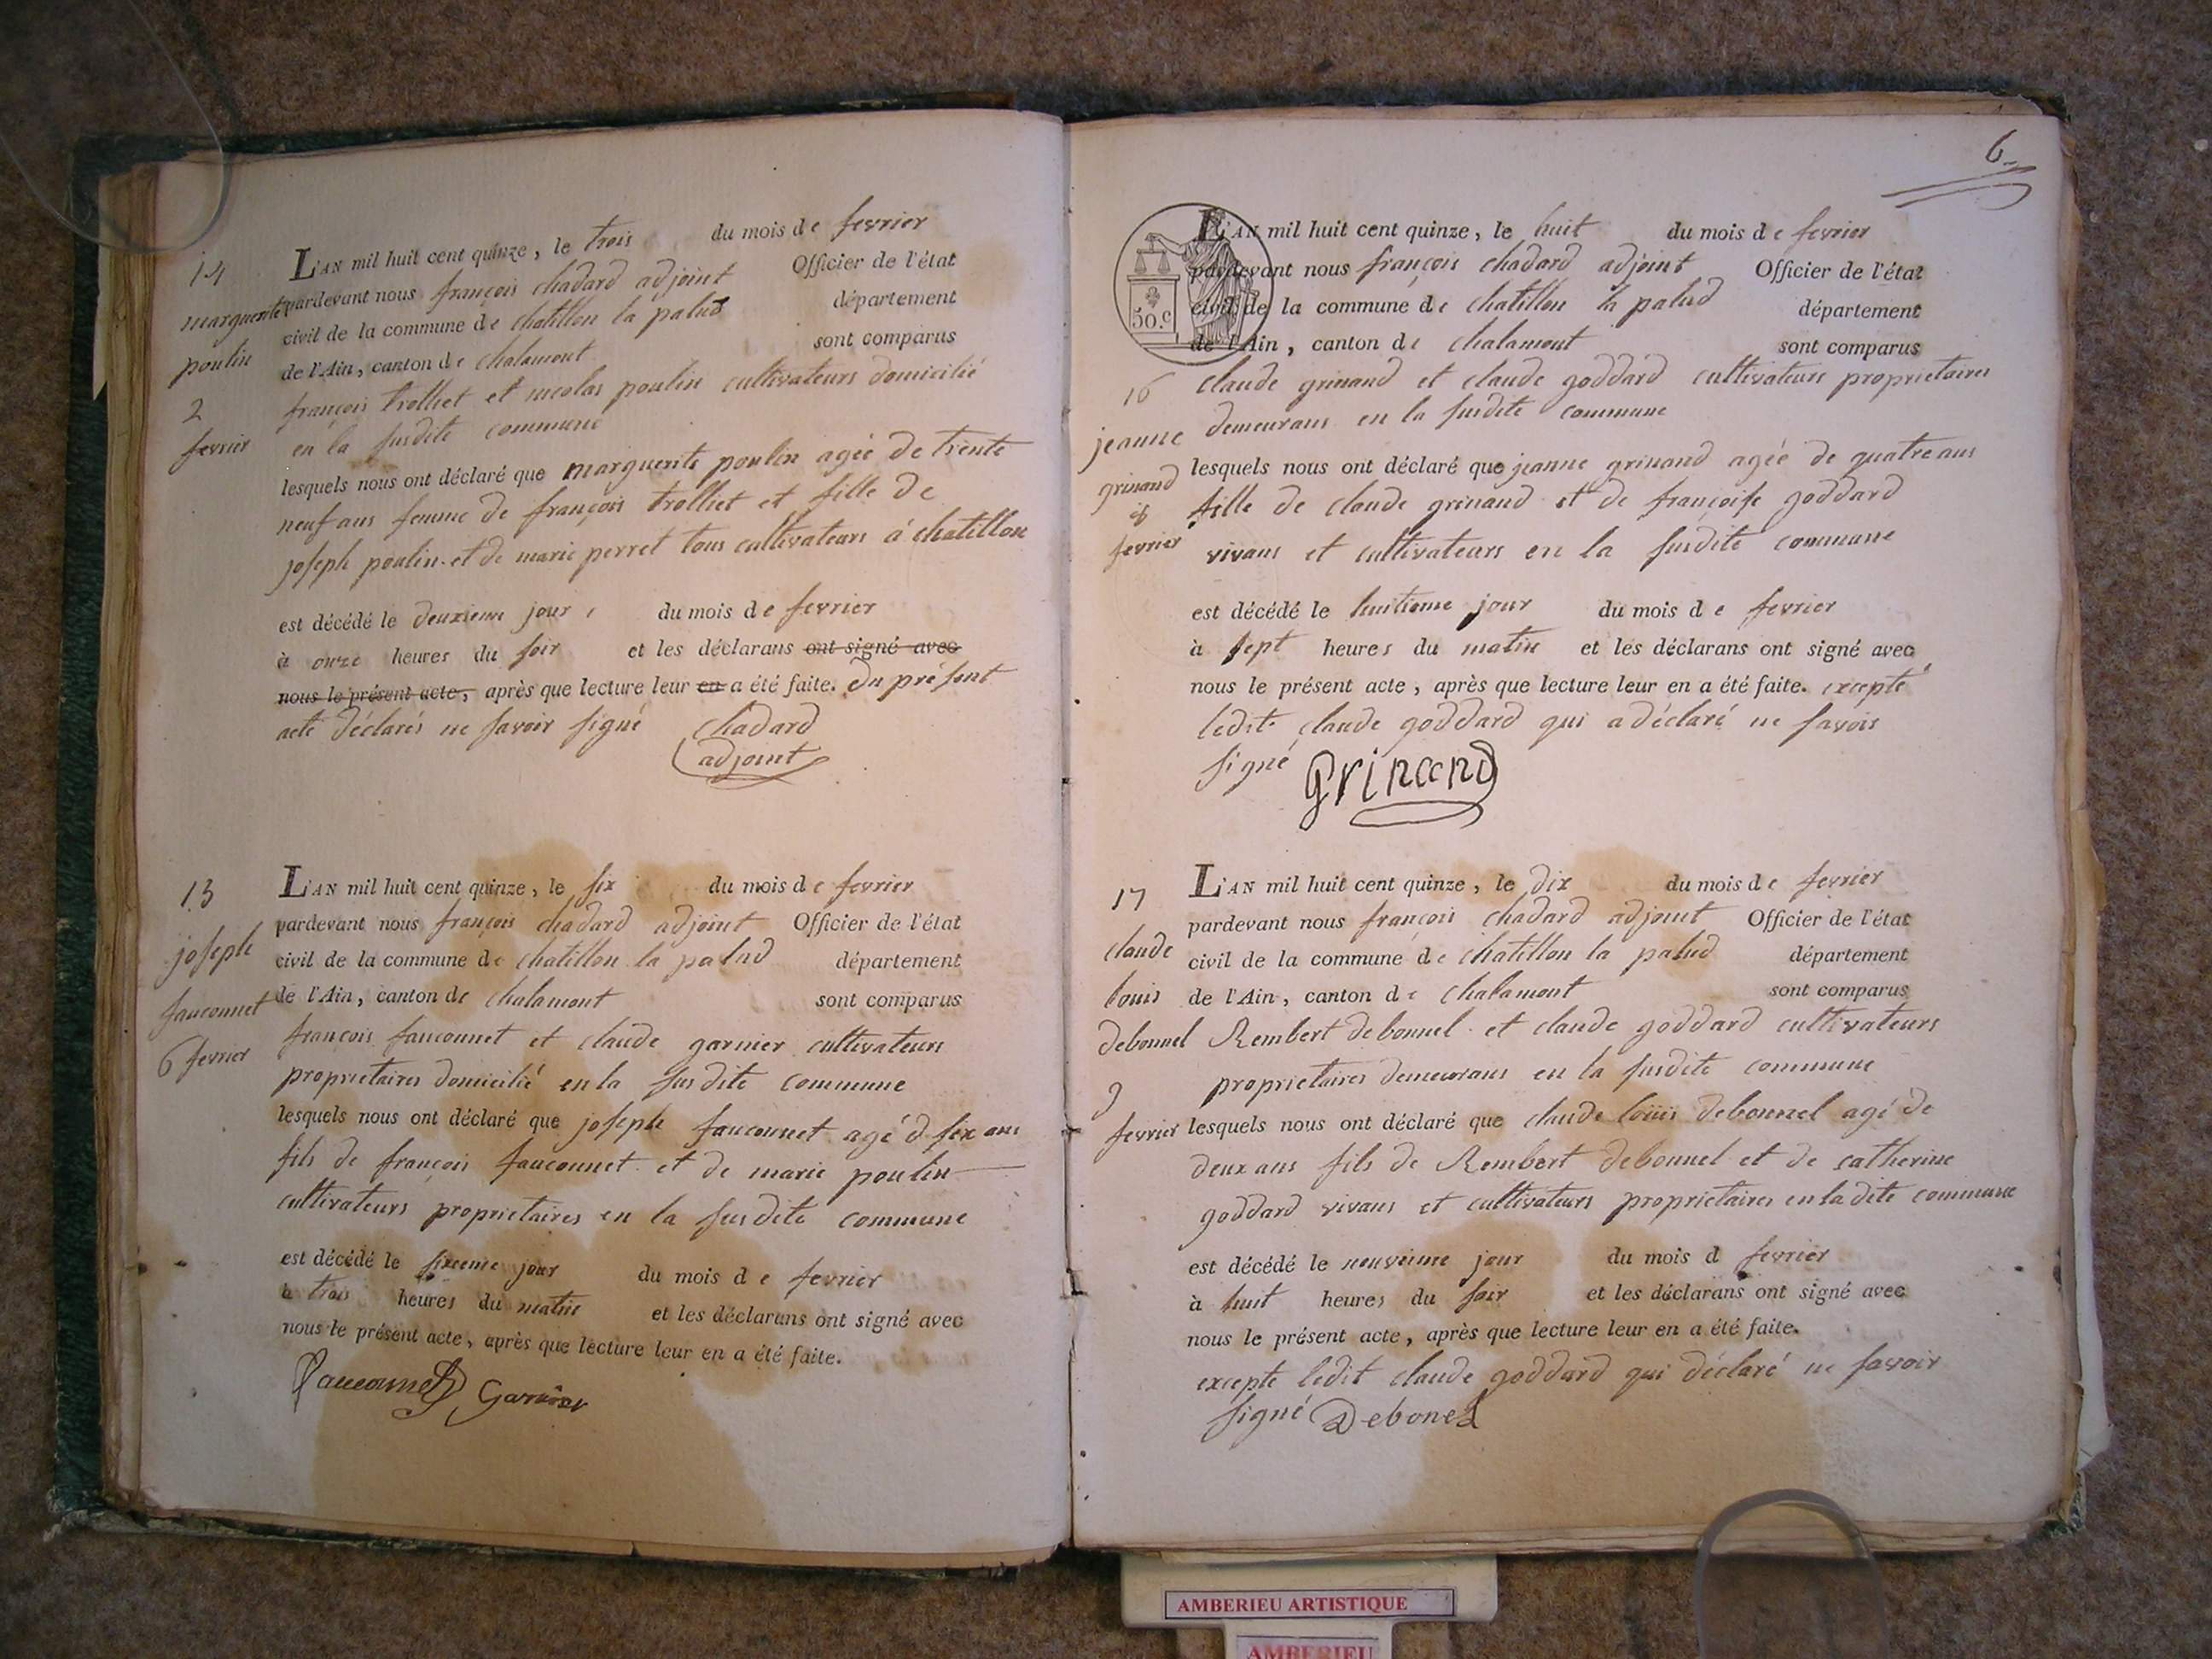 14
marguerite
poulin
2
fevrier
L'AN mil huit cent quinze, le trois du mois de fevrier
pardevant nous françois chadard adjoint Officier de l'état
civil de la commune de chatillon la palud département
de l'Ain, canton de chalamont sont comparus
françois trolliet et nicolas poulin cultivateurs domicilié
en la susdite commune
lesquels nous ont déclaré que marguerite poulin agée de trente
neuf ans femme de françois trolliet et fille de
joseph poulin et de marie perret tous cultivateurs à chatillon
est décédé le deuxieme jour du mois de fevrier
à onze heures du soir et les déclarans ont signé avec
nous le présent acte, après que lecture leur en a été faite. du présent
acte déclarés ne savoir signé chadard
adjoint
13
joseph
fauconnet
6 fevrier
L'AN mil huit cent quinze, le six du mois de fevrier
pardevant nous françois chadard adjoint Officier de l'état
civil de la commune de chatillon la palud département
de l'Ain, canton de chalamont sont comparus
françois fauconnet et claude garnier cultivateurs
proprietaires domicilié en la susdite commune
lesquels nous ont déclaré que joseph fauconnet agé d six ans
fils de françois fauconnet et de marie poulin
cultivateurs proprietaires en la susdite commune
est décédé le sixieme jour du mois de fevrier
à trois heures du matin et les déclarans ont signé avec
nous le présent acte, après que lecture leur en a été faite.
fauconnet Garnier
6
50.c
16
jeanne
grinand
fevrier
L'AN mil huit cent quinze, le huit du mois de fevrier
pardevant nous françois chadard adjoint Officier de l'état
civil de la commune de chatillon la palud département
de l'Ain, canton de chalamont sont comparus
claude grinand et claude goddard cultivateurs proprietaires
demeurans en la susdite commune
lesquels nous ont déclaré que jeanne grinand agée de quatre ans
fille de claude grinand et de françoise goddard
vivans et cultivateurs en la susdite commune
est décédé le huitieme jour du mois de fevrier
à sept heures du matin et les déclarans ont signé avec
nous le présent acte, après que lecture leur en a été faite. excepté
ledit claude goddard qui a déclaré ne savoir
signé Grinand
17
claude
louis
debonnel
9
fevrier
L'AN mil huit cent quinze, le dix du mois de fevrier
pardevant nous françois chadard adjoint Officier de l'état
civil de la commune de chatillon la palud département
de l'Ain, canton de chalamont sont comparus
Rembert debonnel et claude goddard cultivateurs
proprietaires demeurans en la susdite commune
lesquels nous ont déclaré que claude loüis debonnel agé de
deux ans fils de Rembert debonnel et de catherine
goddard vivans et cultivateurs proprietaires en la dite commune
est décédé le neuvieme jour du mois d fevrier
à huit heures du soir et les déclarans ont signé avec
nous le présent acte, après que lecture leur en a été faite.
excepte ledit claude goddard qui déclaré ne savoir
signé Debonel
AMBERIEU ARTISTIQUE
AMBERIEU